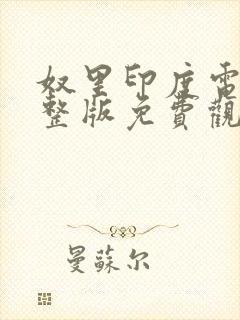 奴里印度電
整版免費觀
曼蘇尔